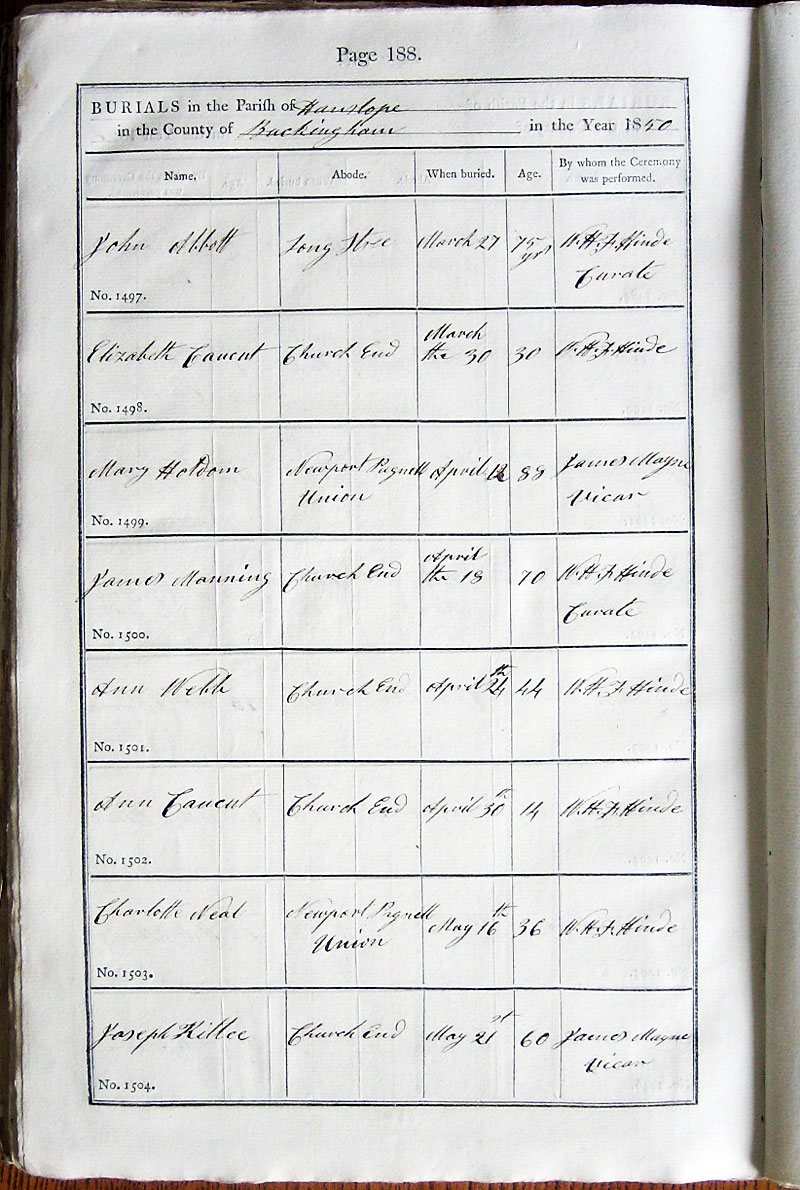 Page 188.
BURIALS in the Parish of Hanslope
in the County of Buckingham in the Year 1850
Name. Abode. When buried. Age. By whom the Ceremony was performed.
John Abbott Long Stree March 27 75 yrs W.H.F. Hinde
Curate
No. 1497.
March
Elizabeth Caucut Church End the 30 30 W.H.F. Hinde
No. 1498.
Mary Holdom Newport Pagnell April 12 88 James Mayne
Union Vicar
No. 1499.
April
James Manning Church End the 18 70 W.H.F. Hinde
Curate
No. 1500.
Ann Webb Church End April 24th 44 W.H.F. Hinde
No. 1501.
Ann Caucut Church End April 30th 14 W.H.F. Hinde
No. 1502.
Charlotte Neal Newport Pagnell May 16th 36 W.H.F. Hinde
Union
No. 1503.
Joseph Kittee Church End May 21st 60 James Mayne
Vicar
No. 1504.